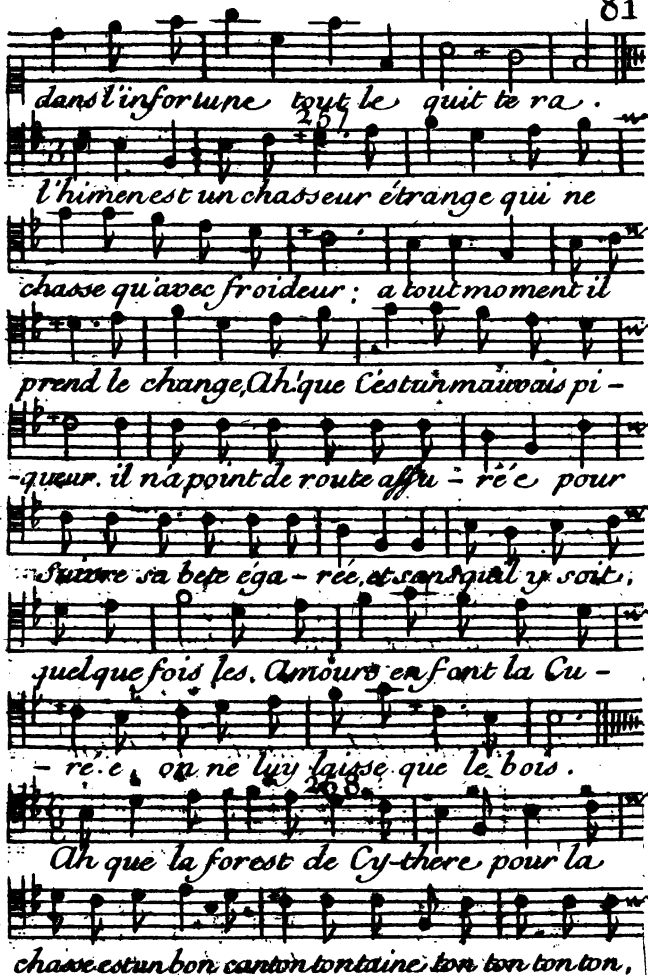 81
dans l'infortune tout le quit te ra .
267
l'himen est un chasseur étrange qui ne
chasse qu'avec froideur ; a tout moment il
prend le change, Ah! que C'est un mauvais pi -
- queur . il n'a point de route assu - ré e pour
Suivre sa bete éga - rée, et sans qu'il y soit,
quelque fois les Amours en font la Cu -
- ré . e , on ne luy laisse que le bois .
268
Ah que la forest de Cy - there pour la
chasse est un bon canton tontaine, ton ton ton ton,